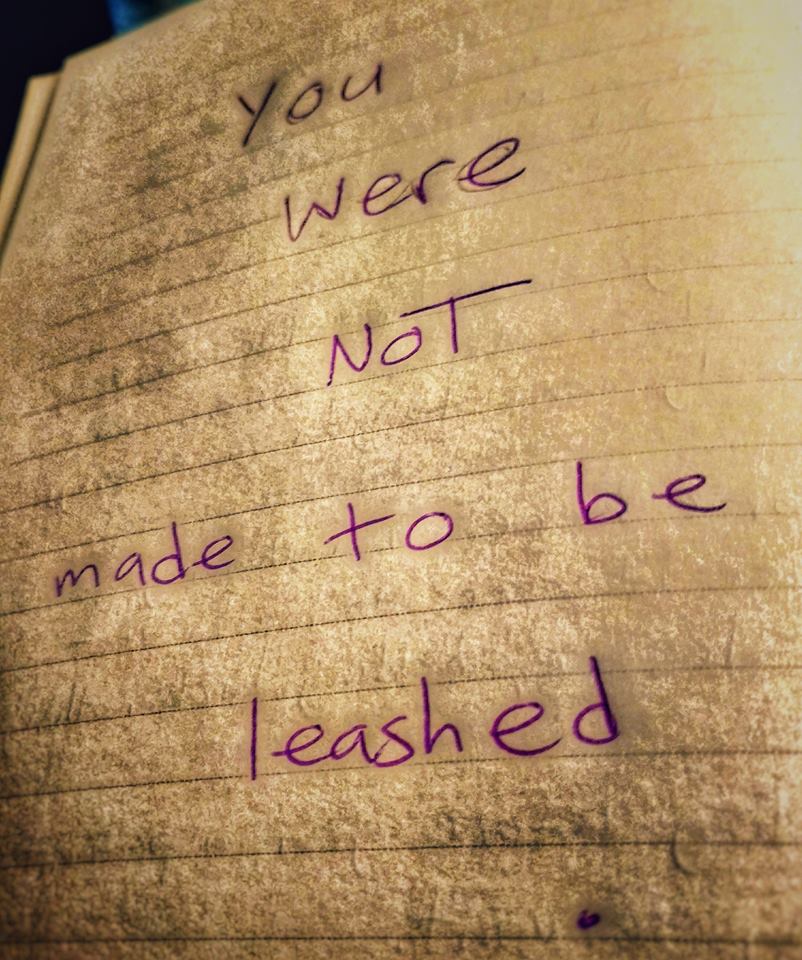 You
Were
NOT
made to be
leashed
.